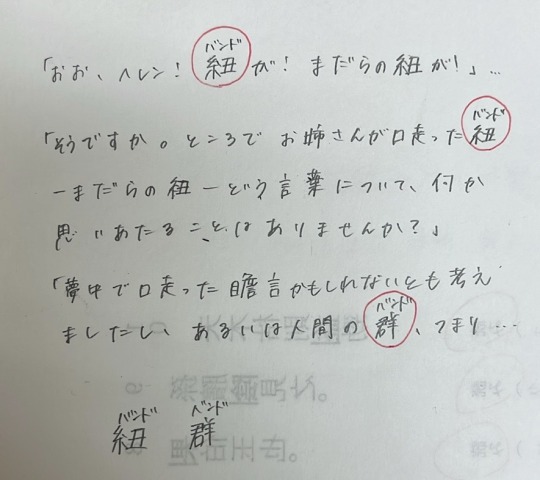 バンド
「おお、ヘレン! 紐が! まだらの紐が!」…
バンド
「そうですか。ところで お姉さんが口走った紐
ーまだらの紐ーという言葉について、何か
思いあたることはありませんか?」
「夢中で口走った瞻言かもしれないとも考え
バンド
ましたし、あるいは人間の群、つまり…
バンド バンド
紐 群